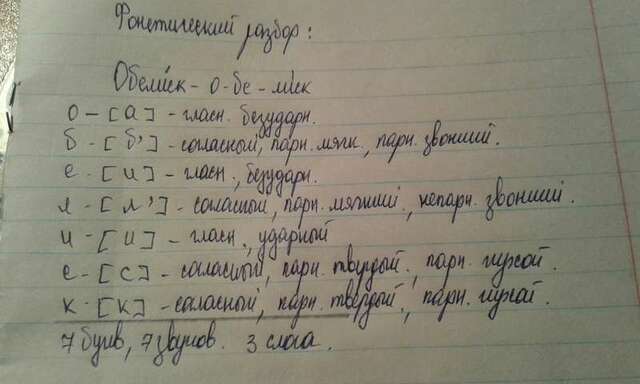 Фонетический разбор:
Обели́ск - о-бе-ли́ск
о - [а] - гласн. безударн.
б - [б'] - согласный, парн. мягк., парн. звонкий.
е - [и] - гласн., безударн.
л - [л'] - согласный, парн. мягкий, непарн. звонкий.
и - [и] - гласн., ударный
с - [с] - согласный, парн. твёрдый, парн. глухой.
к - [к] - согласный, парн. твёрдый, парн. глухой.
7 букв, 7 звуков. 3 слога.